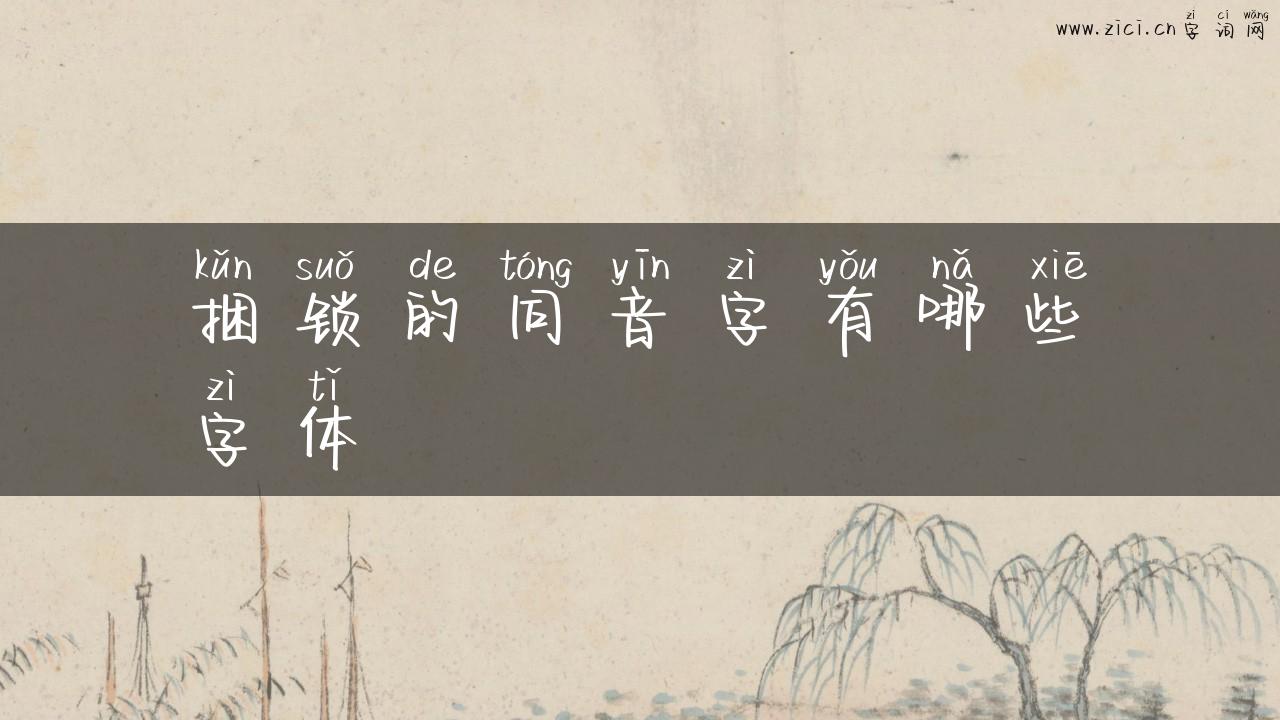 zì cí wǎng
www.zici.cn 字词网
kǔn suǒ de tóng yīn zì yǒu nǎ xiē
捆锁的同音字有哪些
zì tǐ
字体